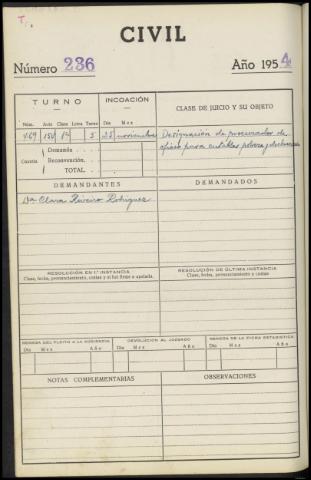 T.
CIVIL
Número 236 Año 1954
TURNO INCOACIÓN CLASE DE JUICIO Y SU OBJETO
Núm. Año Clase Letra Tarea Día Mes
769 1ª 5 25 noviembre Designación de procurador de
oficio para entablar pobreza y
Cuantía Demanda
Reconvención.
TOTAL
DEMANDANTES DEMANDADOS
Dña Clara Riveiro Rodríguez
RESOLUCIÓN EN 1.ª INSTANCIA RESOLUCIÓN DE ÚLTIMA INSTANCIA
Clase, fecha, pronunciamiento, costas y si fué firme o apelada. Clase, fecha, pronunciamiento y costas
REMESA DEL PLEITO A LA AUDIENCIA DEVOLUCIÓN AL JUZGADO REMESA DE LA FICHA ESTADÍSTICA
Día Mes Año Día Mes Año Día Mes Año
NOTAS COMPLEMENTARIAS OBSERVACIONES